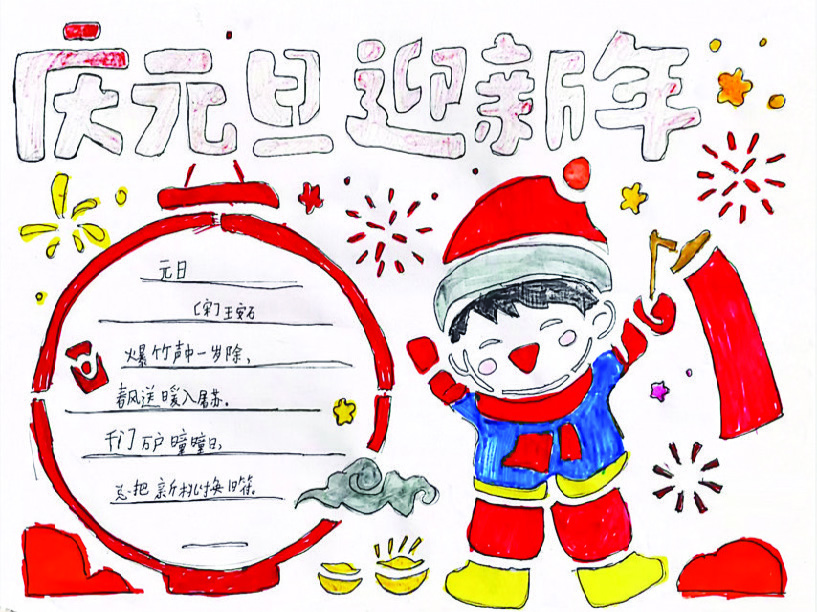 庆元旦迎新年
元日
〔宋〕王安石
爆竹声中一岁除，
春风送暖入屠苏。
千门万户曈曈日，
总把新桃换旧符。